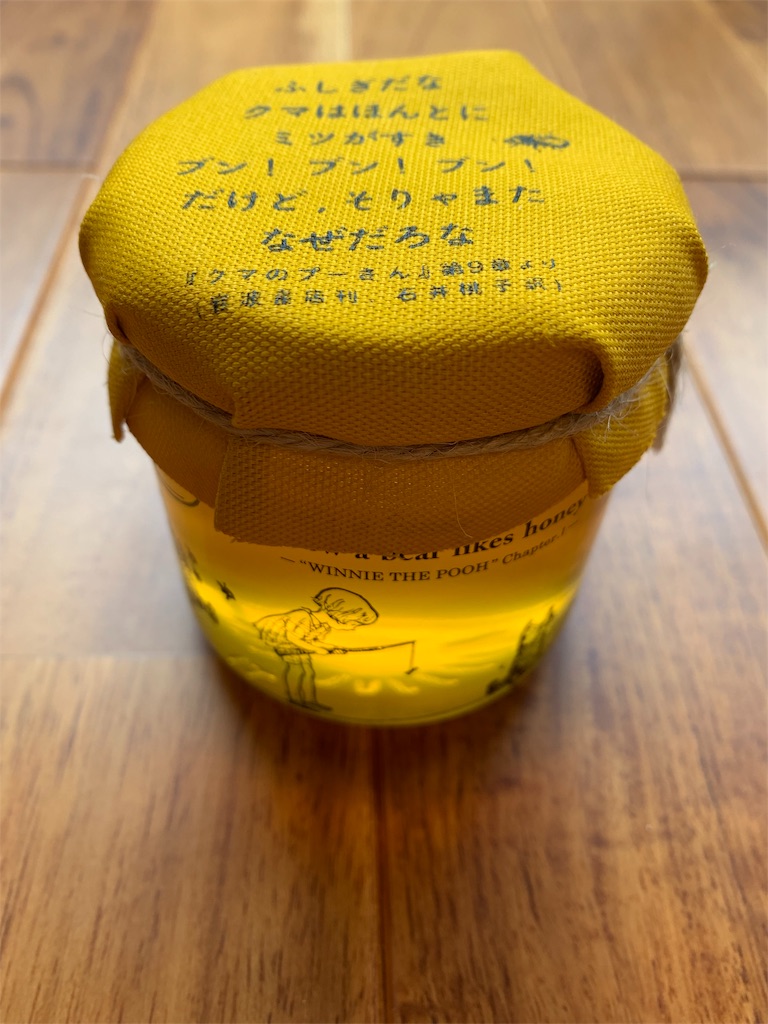 ふしぎだな
クマはほんとに
ミツがすき
ブン! ブン! ブン!
だけど,そりゃまた
なぜだろな
『クマのプーさん』第9章より
(岩波書店刊、石井桃子訳)
a bear likes honey
— "WINNIE THE POOH" Chapter-1 —